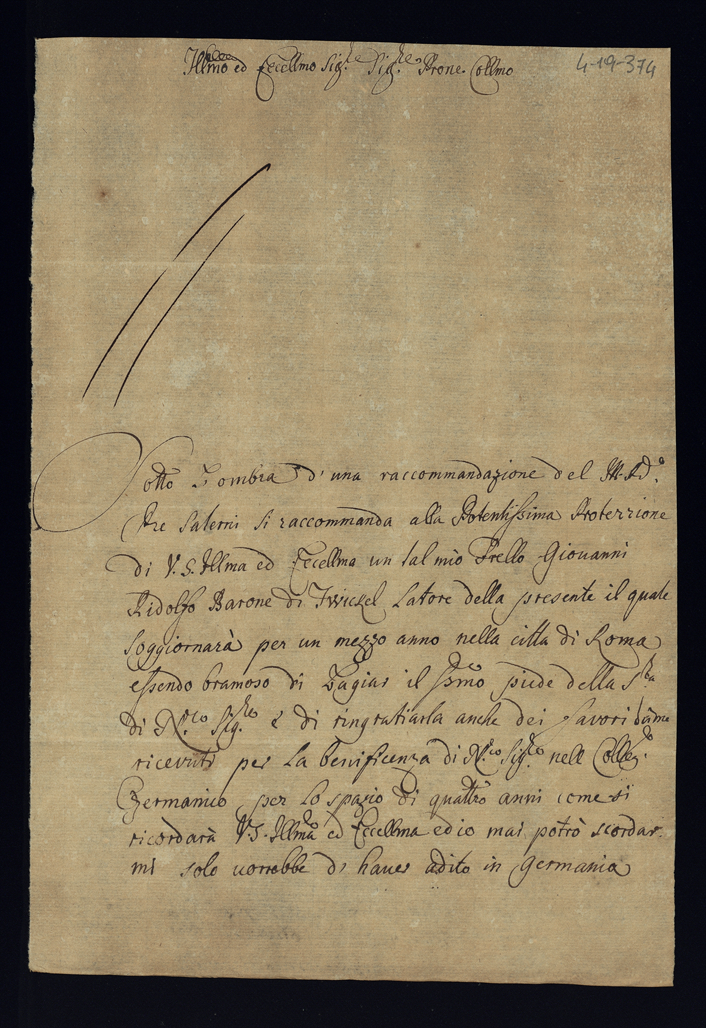 Illmo ed Eccellmo Sig.re Sig.re Prone Collmo
4-19-374
Sotto l'ombra d'una raccommandazione del M.R.do
Pre Salerni si raccommanda alla Potentissima Protezzione
di V.S. Illma ed Eccellma un tal mio Frello Giovanni
Ridolfo Barone di Twickel Latore della presente il quale
soggiornarà per un mezzo anno nella citta di Roma
essendo bramoso di bagiar il ssmo piede della Sta
di N.ro Sig.re e di ringratiarla anche dei favori da me
ricevuti per la benificenza di N.ro Sig.re nell Colleg.o
Germanico per lo spazio di quattro anni come si
ricordarà V.S. Illma ed Eccellma ed io mai potrò scordar
mi solo vorrebbe d'haver adito in Germania